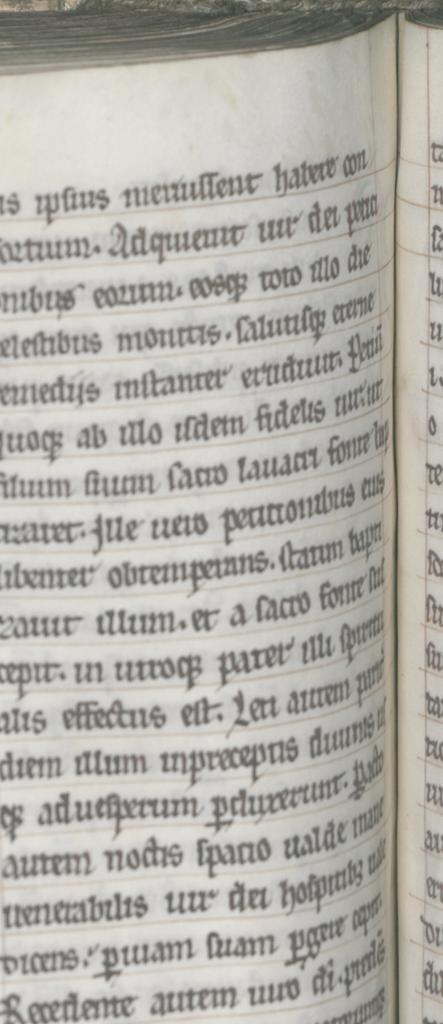 ipsius meruissent habere con
ortium. Adquieuit uir dei peti
onibus eorum. eosq; toto illo die
elestibus monitis. salutisq; eterne
emedijs instanter erudiuit. Petiit
quoq; ab illo isdem fidelis uir. ut
filium suum sacro lauacri fonte bap
tizaret. Ille uero petitionibus eius
libenter obtemperans. statim bapti
zauit illum. et a sacro fonte sus
cepit. in utroq; pater illi spiritu
alis effectus est. Leti autem
diem illum inpreceptis diuinis us
q; aduesperum pduxerunt. Pacto
autem noctis spatio ualde mane
uenerabilis uir dei hospitib; uale
dicens. puiam suam pgere cepit.
Recedente autem uiro di.